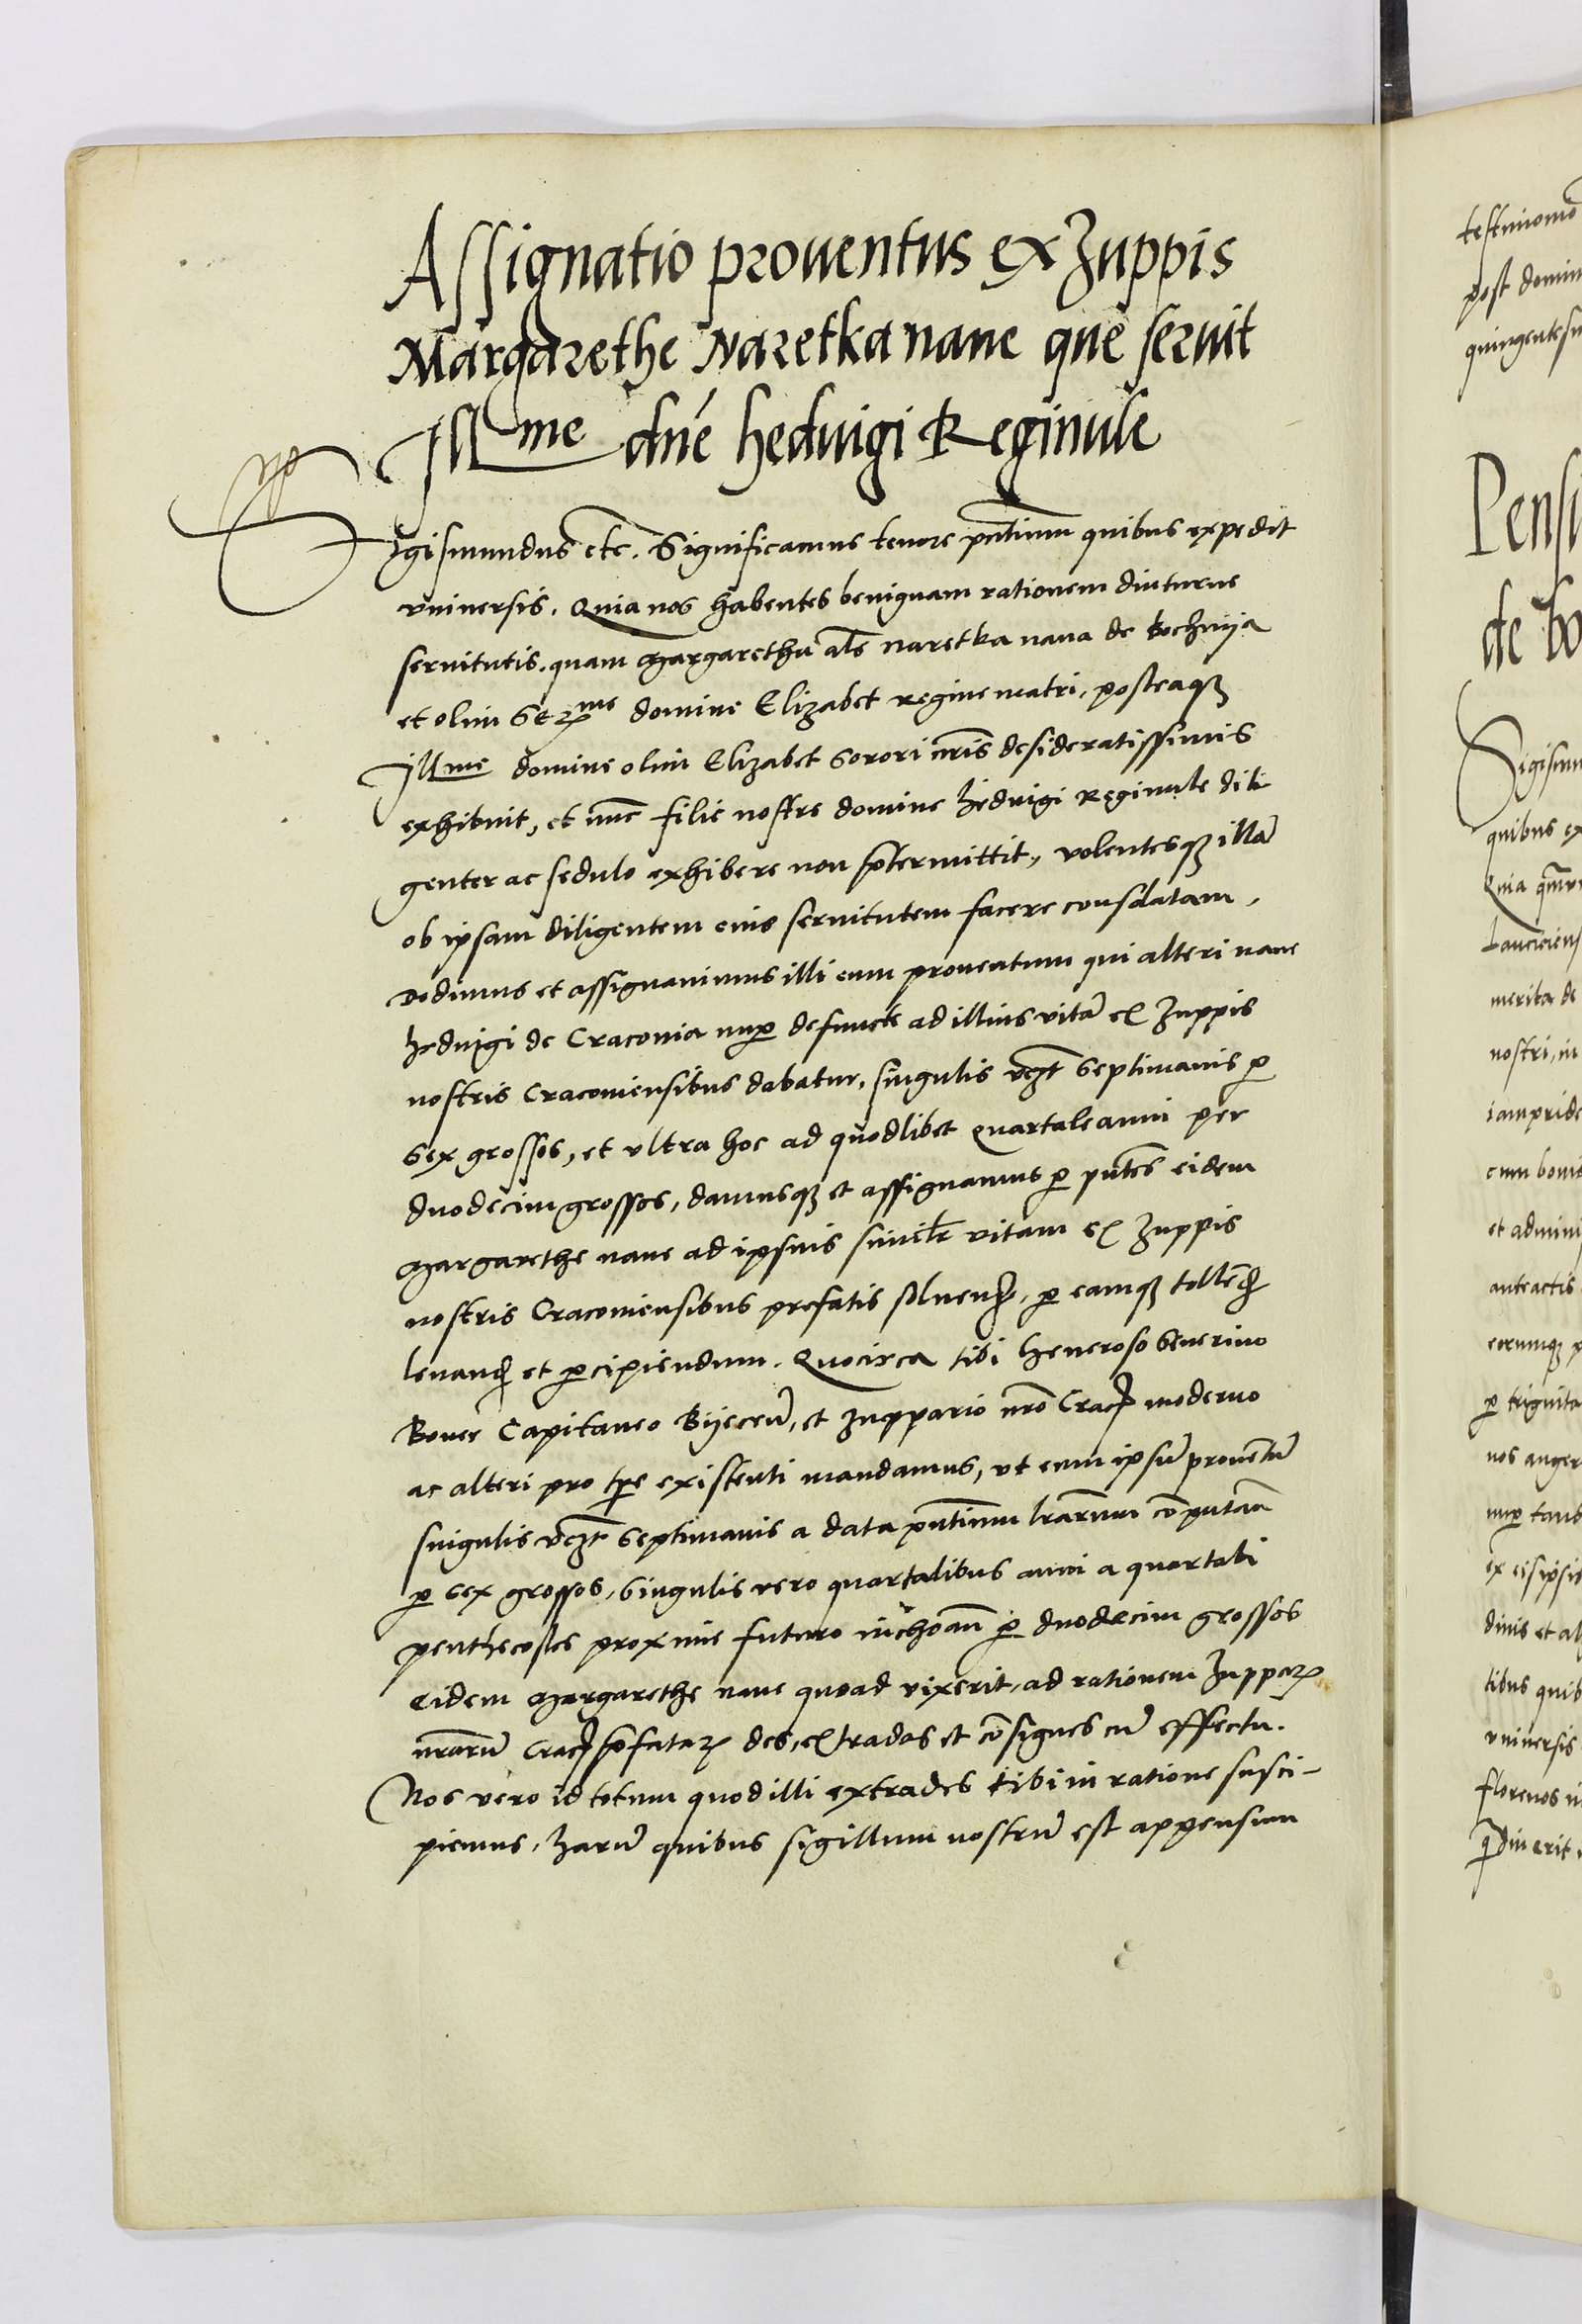 Assignatio prouentus ex Zuppis
Margarethe Naretka nane que seruit
Illme dne heduigi Reginule
Sigismundus etc. Significamus tenore pntium quibus expedit
vniuersis. Quia nos habentes benignam rationem diuturne
seruitutis, quam Margaretha als Naretka nana de Bochnija
et olim Serme domine Elizabet regine matri, posteaq
Illme domine olim Elizabet sorori nris desideratissimis
exhibuit, et nunc filie nostre domine heduigi Reginule dili
genter ac sedulo exhibere non ptermittit, volentesq illa
ob ipsam diligentem eius seruitutem facere consolatam,
dedimus et assignauimus illi eum prouentum qui alteri nane
heduigi de Cracouia nup defuncte ad illius vita ex Zuppis
nostris Cracouiensibus dabatur, singulis vczt septimanis p
sex grossos, et vltra hoc ad quodlibet quartale anni per
duodecim grossos, damusq et assignamus p pntes eidem
Margarethe nane ad ipsius similr vitam ex Zuppis
nostris Cracouiensibus prefatis soluend, p eamq tollend
leuand et pcipiendum. Quocirca tibi Generoso Seuerino
Boner Capitaneo Bijecen, et Zuppario nro Crac moderno
ac alteri pro tpe existenti mandamus, vt eum ipsum prouentu
singulis vczt septimanis a data pntium lrarum computan
p sex grossos, singulis vero quartalibus anni a quartali
penthecostes proxime futuro inchoan p duodecim grossos
eidem Margarethe nane quoad vixerit, ad rationem Zuppar
nrarum Crac pfatar des, extradas et consignes cum effectu.
Nos vero id totum quod illi extrades tibi in ratione susci-
piemus, harum quibus sigillum nostrum est appensum
testimonio
post domin
quingentesi
Pensi
de bo
Sigism
quibus ex
Quia
merita de
nostri, in
iampride
cum bonis
anteactis
eorumq p
p triginta
nos auger
nup
ex eisipsis
dinis et al
tibus quib
vniuersis
florenos in